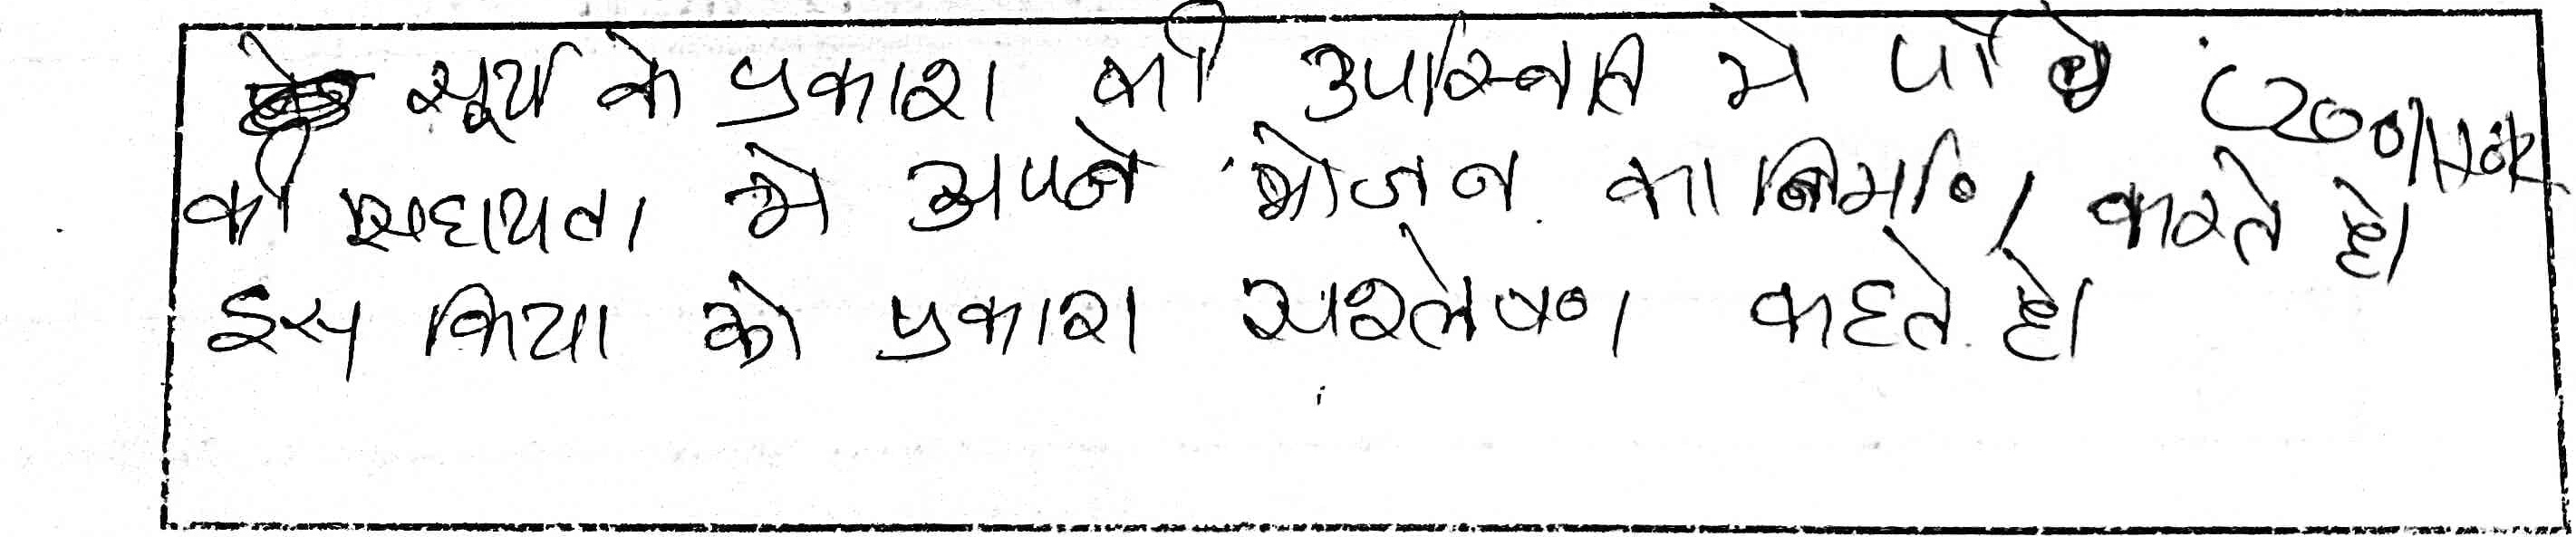 सूर्य के प्रकाश की उपस्थिति मे पौधे CO2 और H2O
की सहायता मे अपने भोजन का निर्माण करते है।
इस क्रिया को प्रकाश सश्लेषण कहते है।